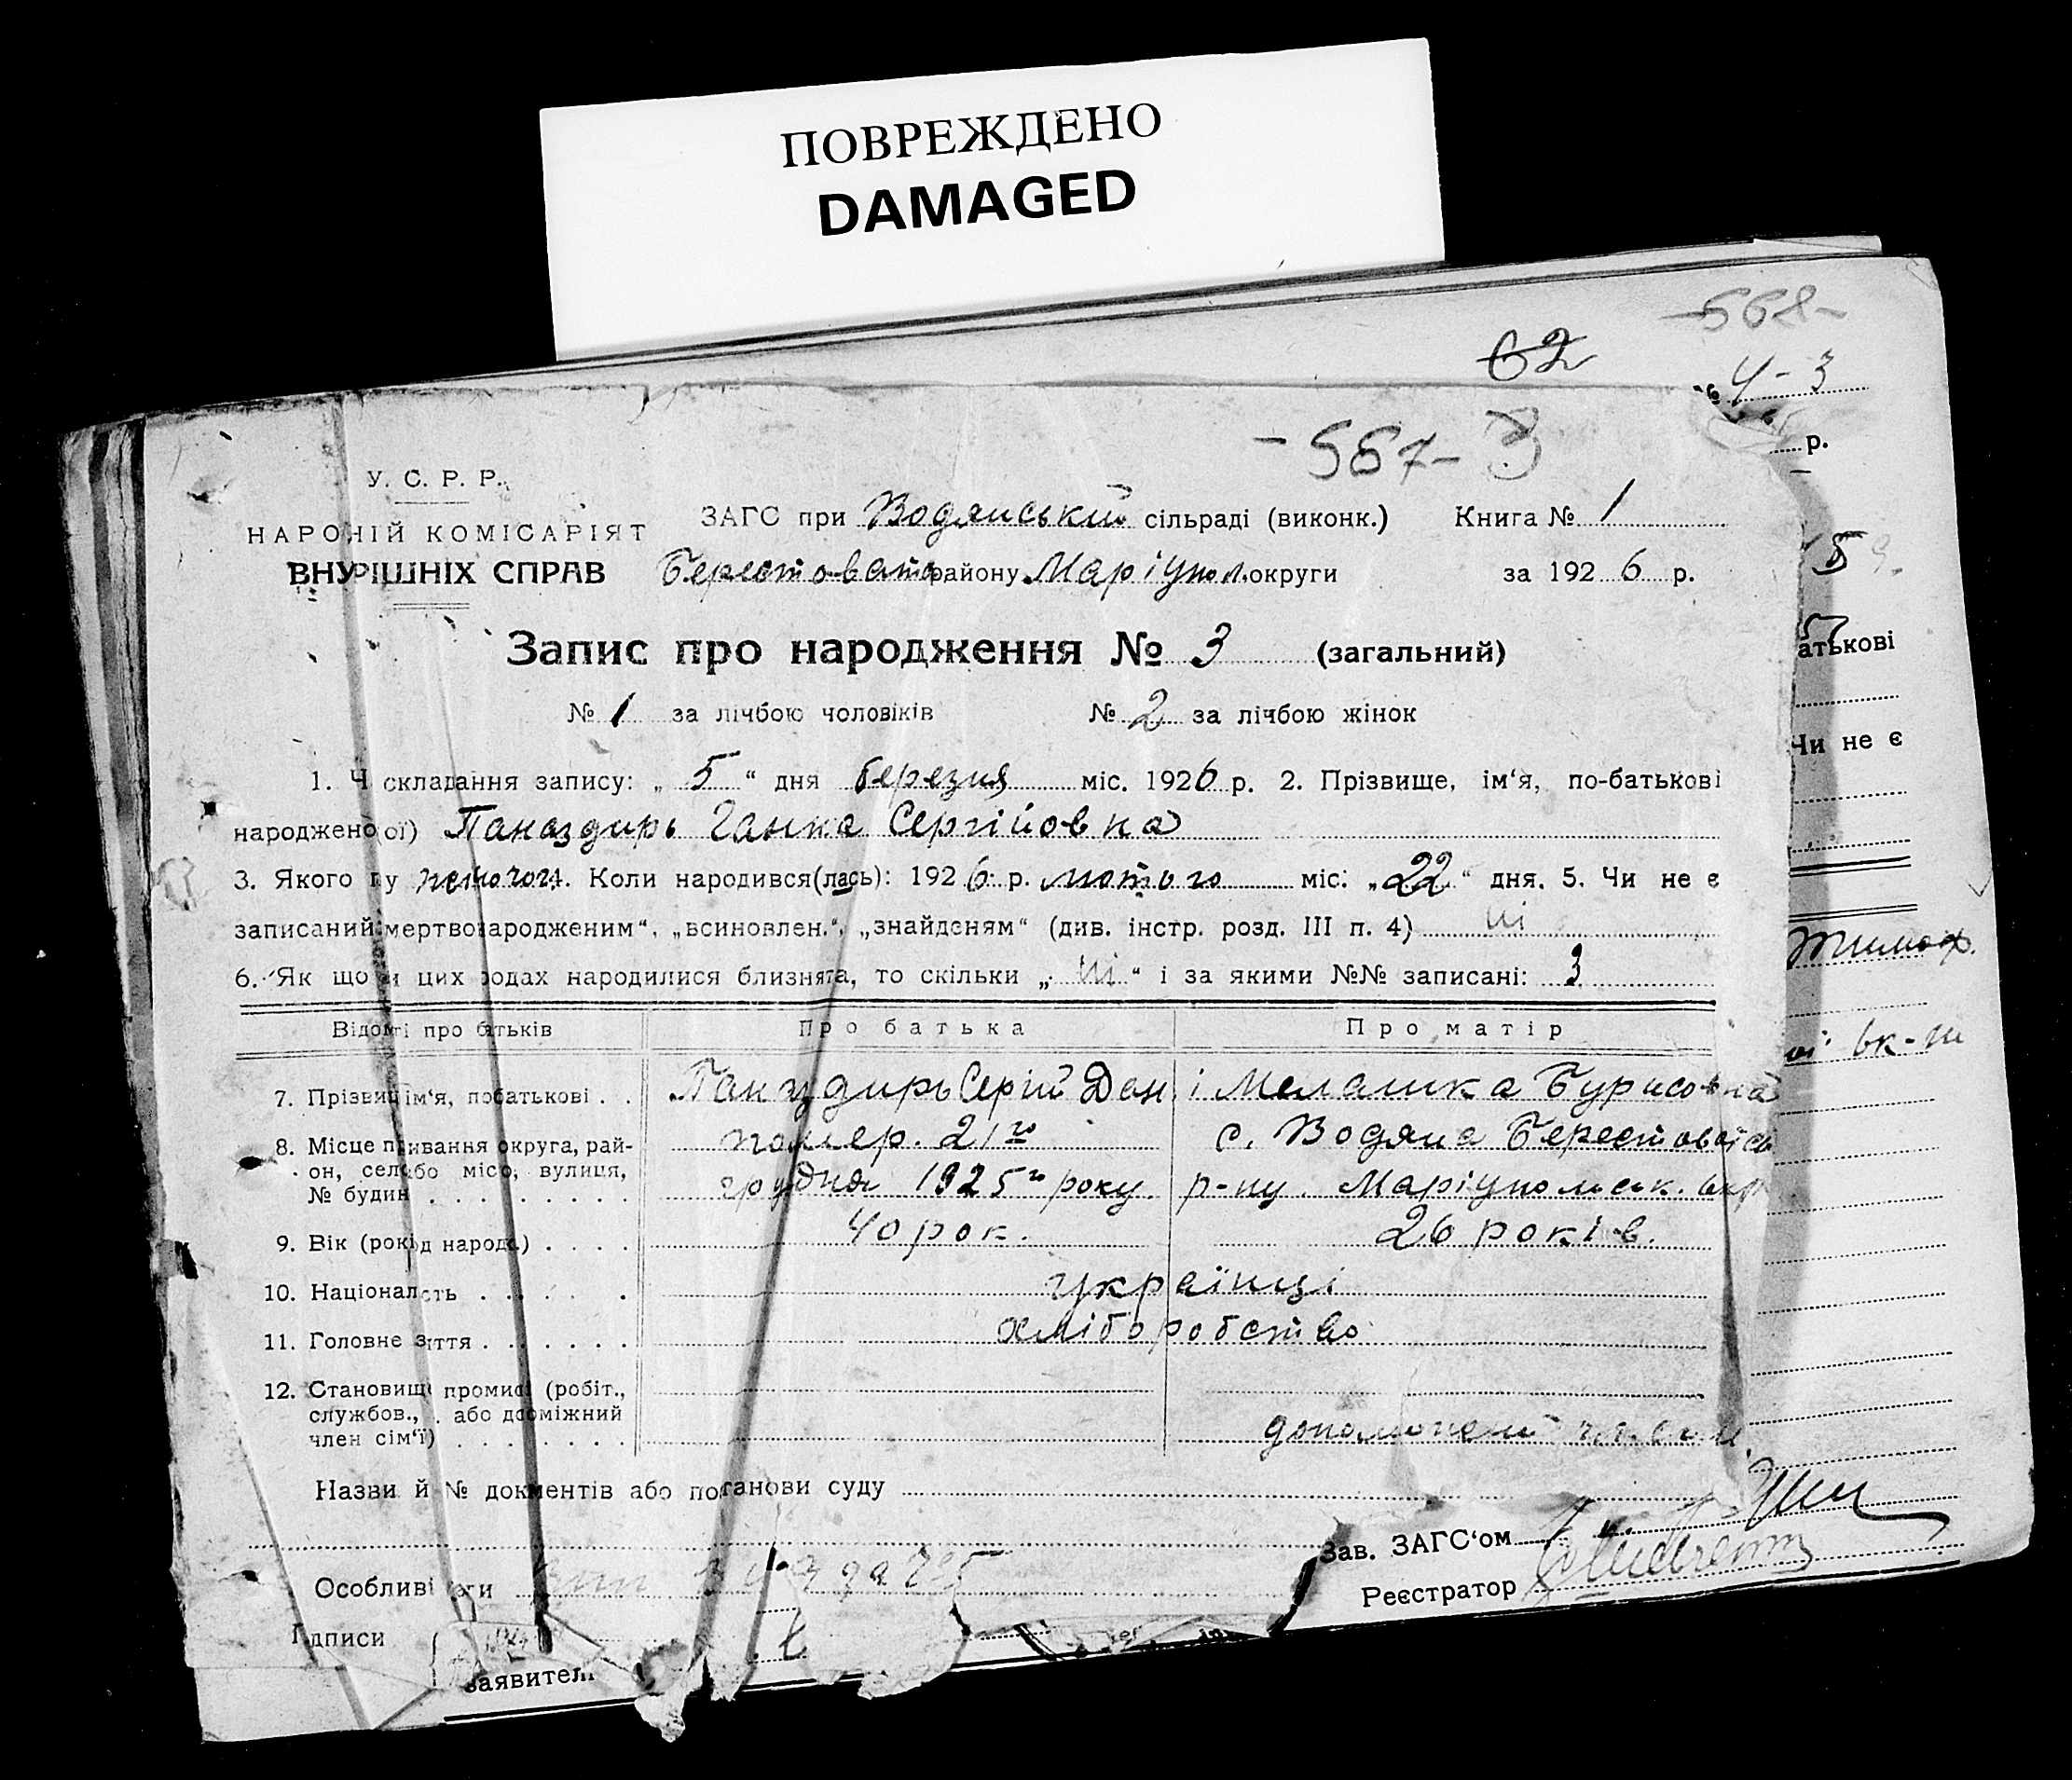 ПОВРЕЖДЕНО
DAMAGED
-568-
62
№ 4-3
р.
-567-
У. С. Р. Р.
НАРО НІЙ КОМІСАРІЯТ
ВНУ РІШНІХ СПРАВ
ЗАГС при Водянський сільраді (виконк.) Книга № 1
Берестоват району Маріупол. округи за 1926 р.
Запис про народження № 3 (загальний)
№ 1 за лічбою чоловіків № 2 за лічбою жінок
1. Ч складання запису: „5“ дня березня міс. 1926 р. 2. Прізвище, ім‘я, по-батькові
народжено (ої) Паназдирь Ганна Сергійовна
3. Якого Коли народився(лась): 1926 р. лютого міс. „22“ дня. 5. Чи не є
записаний мертвонародженим“, „всиновлен.“, „знайденям“ (див. інстр. розд. III п. 4) ні
6. Як що и цих родах народилися близнята, то скільки „ні“ і за якими №№ записані: 3
Відомі про батьків Про батька Про матір
7. Прізвищ ім‘я, побатькові . . Паназдирь Сергій Дан і Меланка Бурисовна
8. Місце п ивання округа, рай- помер. 21го с. Водяна Берестовоїсь
он, сел або місо, вулиця,
№ будин . . . . . . . . . грудня 1925го року. р-ну. Маріупольск. окр
9. Вік (рок д народ.) . . . . 40 рок. 26 років.
10. Націонал сть . . . . . українці
11. Головне з ття . . . . . . . хліборобство
12. Становищ промисі (робіт.,
службов., . або до оміжний
член сім‘ї) . . . . . . . .
Назви й № документів або по танови суду
Особливі ги
дписи
Заявител
Зав. ЗАГС‘ом
Реєстратор
атькові
Чи не є
Тимоф.